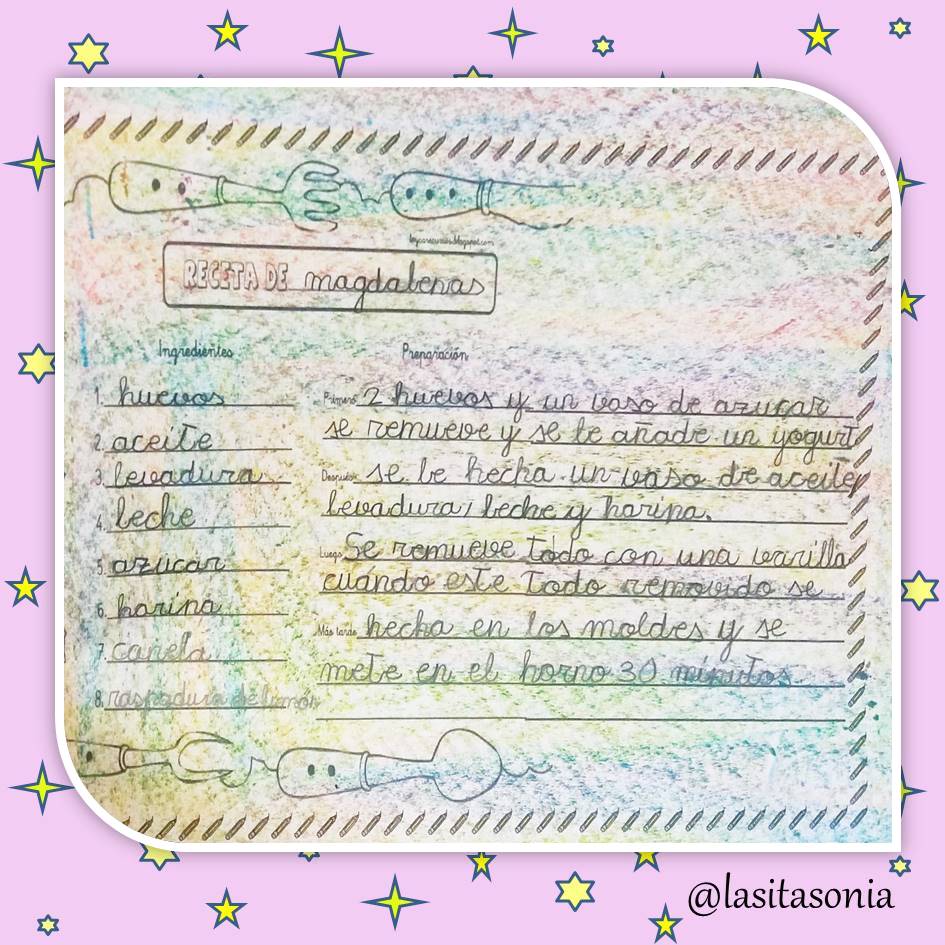 leycorecursos.blogspot.com
RECETA DE magdalenas
Ingredientes
1. huevos
2. aceite
3. levadura
4. leche
5. azúcar
6. harina
7. canela
8. raspadura de limón
Preparación
Primero 2 huevos y un vaso de azucar
se remueve y se le añade un yogurt
Después se le hecha un vaso de aceite,
levadura, leche y harina.
Luego Se remueve todo con una varilla
cuándo este todo removido se
Más tarde hecha en los moldes y se
mete en el horno 30 minutos
@lasitasonia